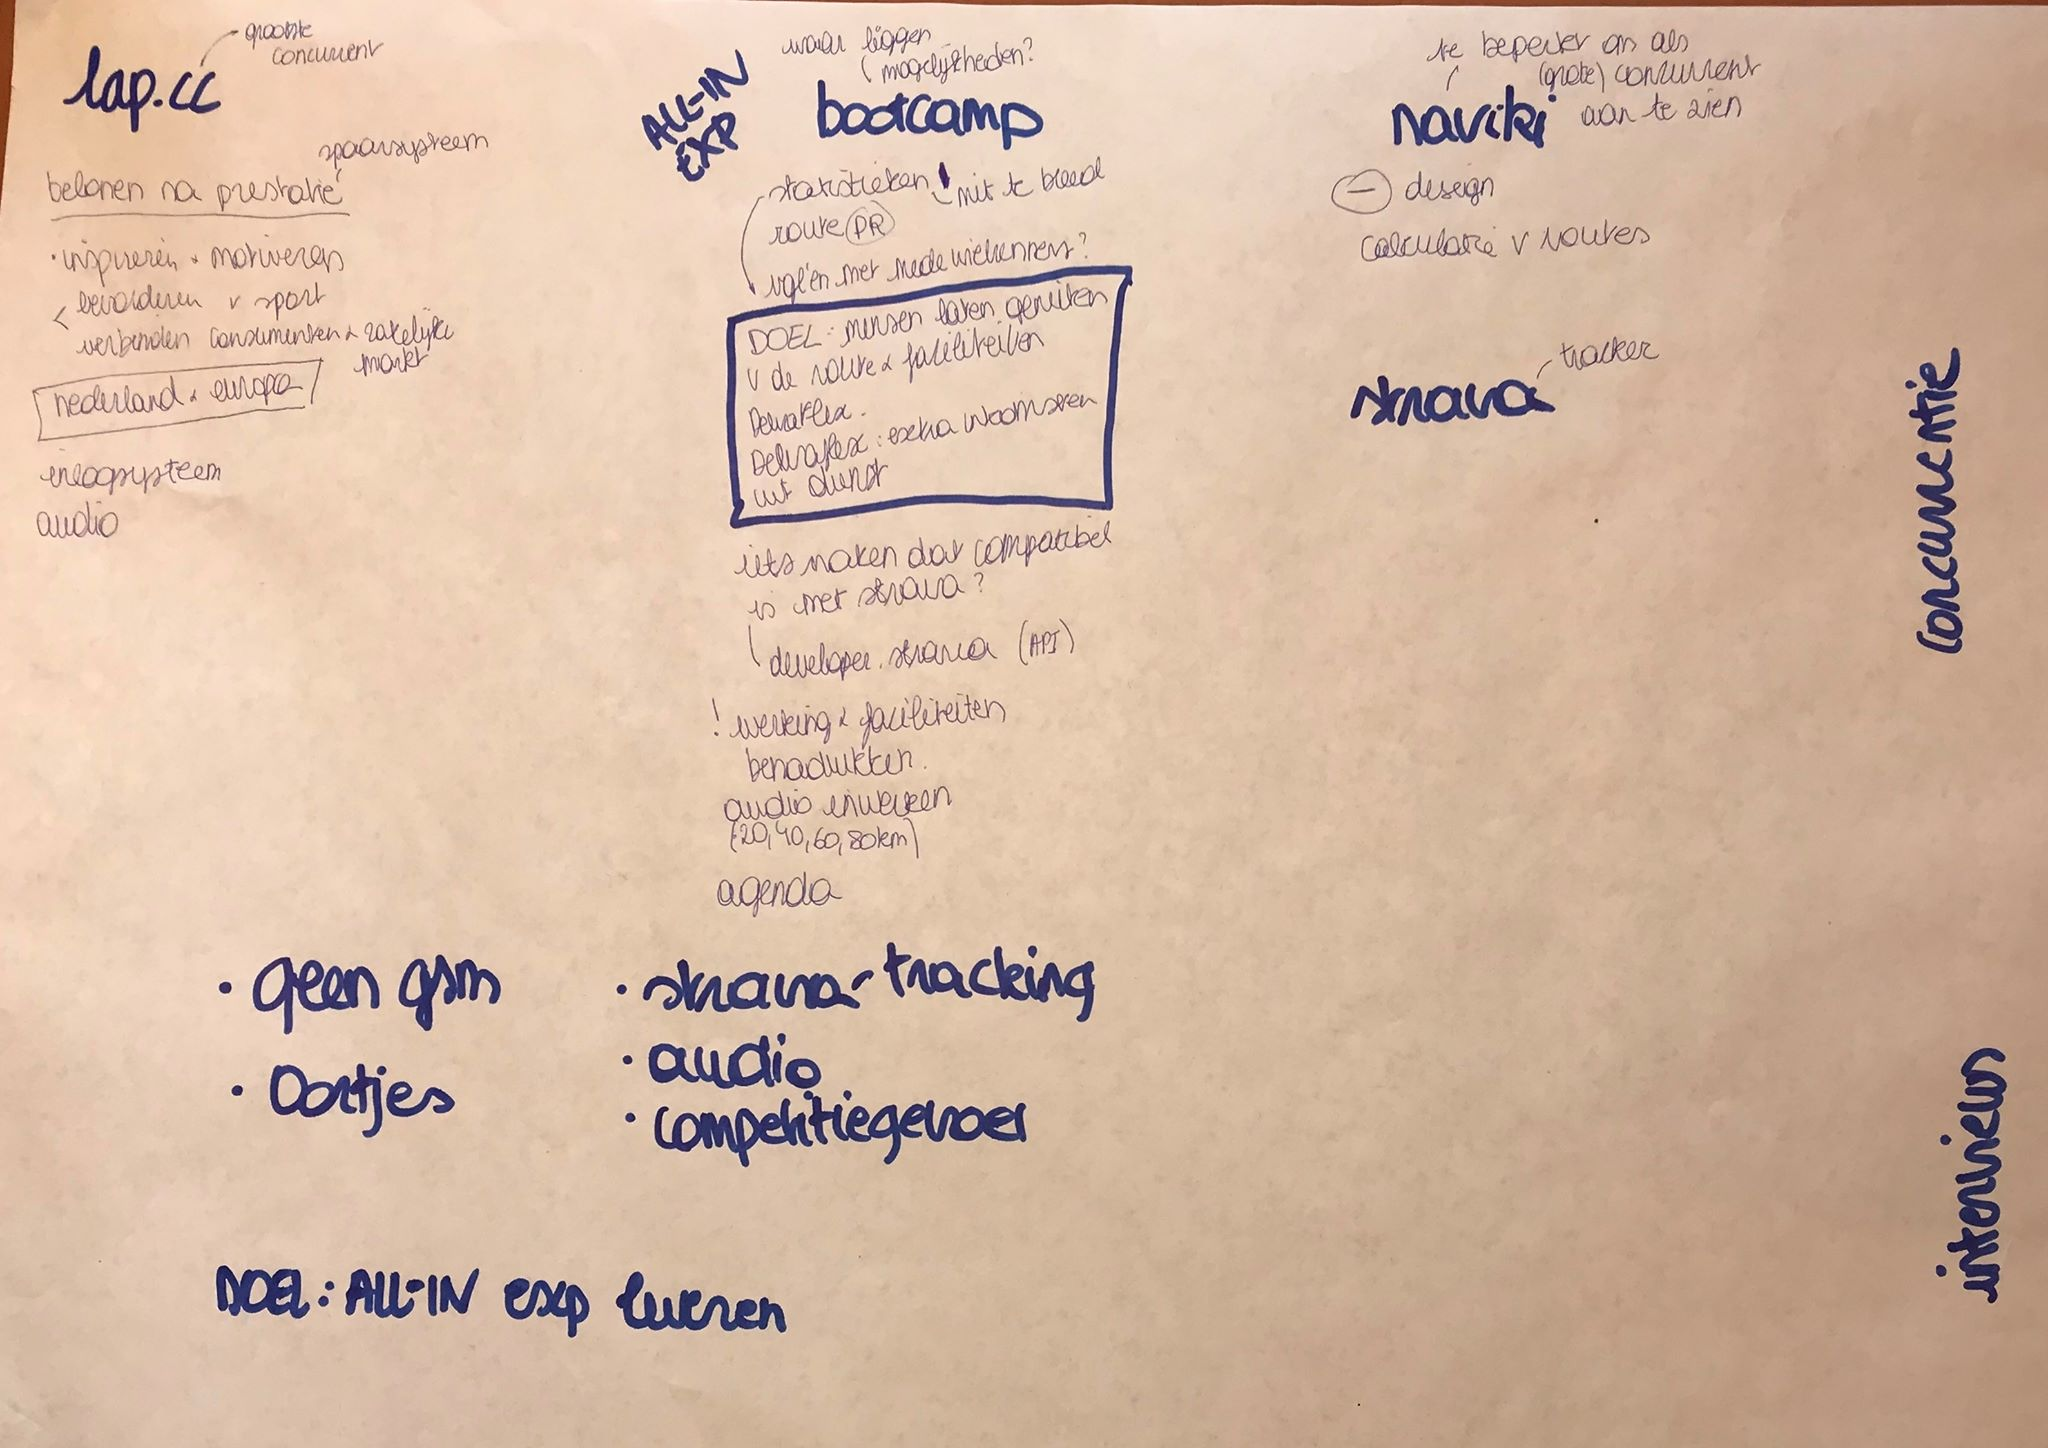 lap.cc
grootste
concurrent
spaarsysteem
belonen na prestatie
· inspireren & motiveren
< bevorderen v sport
verbinden consumenten & zakelijke
markt
nederland & europa
inlogsysteem
audio
ALL-IN
EXP
waar liggen
mogelijkheden?
bootcamp
statistieken
niet te breed
route PR
vgl'en met mede wielrenners?
DOEL: mensen laten genieten
v de route & faciliteiten
Deltaflex.
Deltaflex: extra inkomsten
uit dienst
iets maken dat compatibel
is met strava?
developer.strava (API)
! werking & faciliteiten
benadrukken.
audio inwerken
(20, 40, 60, 80km)
agenda
te beperkt om als
(grote) concurrent
aan te zien
naviki
- design
calculatie v routes
strava
tracker
concurrentie
· geen gsm
· Oortjes
· strava-tracking
· audio
· competitiegevoel
DOEL: ALL-IN exp leveren
interviews